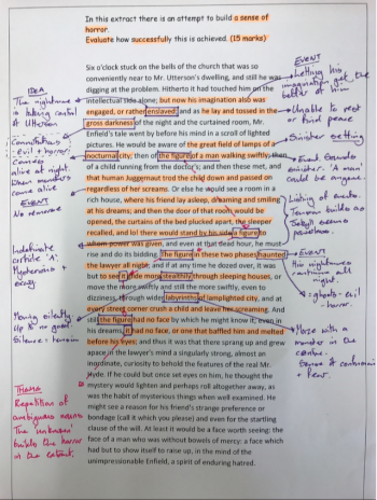 In this extract there is an attempt to build a sense of
horror.
Evaluate how successfully this is achieved. (15 marks)
Six o'clock stuck on the bells of the church that was so
conveniently near to Mr. Utterson's dwelling, and still he was
digging at the problem. Hitherto it had touched him on the
intellectual side alone; but now his imagination also was
engaged, or rather enslaved; and as he lay and tossed in the
gross darkness of the night and the curtained room, Mr.
Enfield's tale went by before his mind in a scroll of lighted
pictures. He would be aware of the great field of lamps of a
nocturnal city; then of the figure of a man walking swiftly; then
of a child running from the doctor's; and then these met, and
that human Juggernaut trod the child down and passed on
regardless of her screams. Or else he would see a room in a
rich house, where his friend lay asleep, dreaming and smiling
at his dreams; and then the door of that room would be
opened, the curtains of the bed plucked apart, the sleeper
recalled, and lo! there would stand by his side a figure to
whom power was given, and even at that dead hour, he must
rise and do its bidding. The figure in these two phases haunted
the lawyer all night; and if at any time he dozed over, it was
but to see it glide more stealthily through sleeping houses, or
move the more swiftly and still the more swiftly, even to
dizziness, through wider labyrinths of lamplighted city, and at
every street corner crush a child and leave her screaming. And
still the figure had no face by which he might know it; even in
his dreams, it had no face, or one that baffled him and melted
before his eyes; and thus it was that there sprang up and grew
apace in the lawyer's mind a singularly strong, almost an
inordinate, curiosity to behold the features of the real Mr.
Hyde. If he could but once set eyes on him, he thought the
mystery would lighten and perhaps roll altogether away, as
was the habit of mysterious things when well examined. He
might see a reason for his friend's strange preference or
bondage (call it which you please) and even for the startling
clause of the will. At least it would be a face worth seeing: the
face of a man who was without bowels of mercy: a face which
had but to show itself to raise up, in the mind of the
unimpressionable Enfield, a spirit of enduring hatred.
IDEA
The nightmare
is taking control
of Utterson
Connotations
evil + horror
Comes
alive at night
when monsters
come alive
EVENT
No remorse
Indefinite
article 'A'
Mysterious +
Moving silently
Up to no good.
Sinister + tension
THEME
Repetition of
ambiguous nouns
The 'unknown'
builds the horror
in the extract.
EVENT
Letting his
imagination get the
better of him
Unable to rest
or find peace
Sinister setting
Event
sinister. 'A man'
could be anyone
Listing of events.
Tension builds as
Jekyll seems
powerless.
EVENT
His nightmares
all night.
: ghosts - evil
- horror.
Maze with a
monster in the
centre.
Sense of confusion
+ fear.